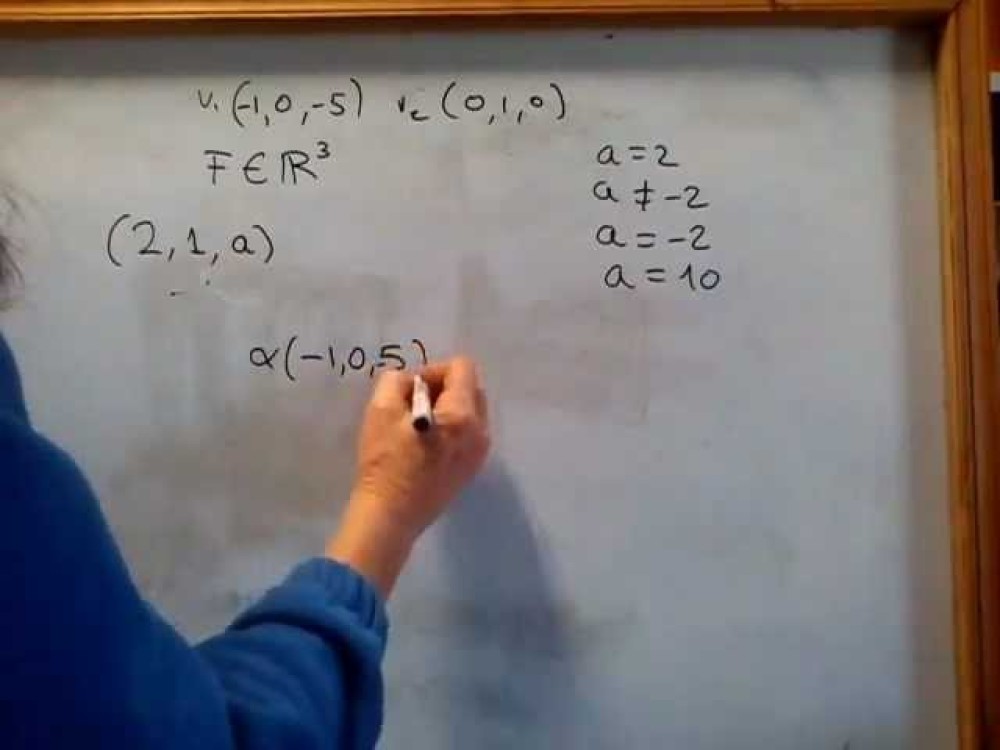 v₁ (-1,0,-5) v₂ (0,1,0)
F∈ℝ³
a = 2
a ≠ -2
(2,1,a)
a = -2
a = 10
α(-1,0,-5)